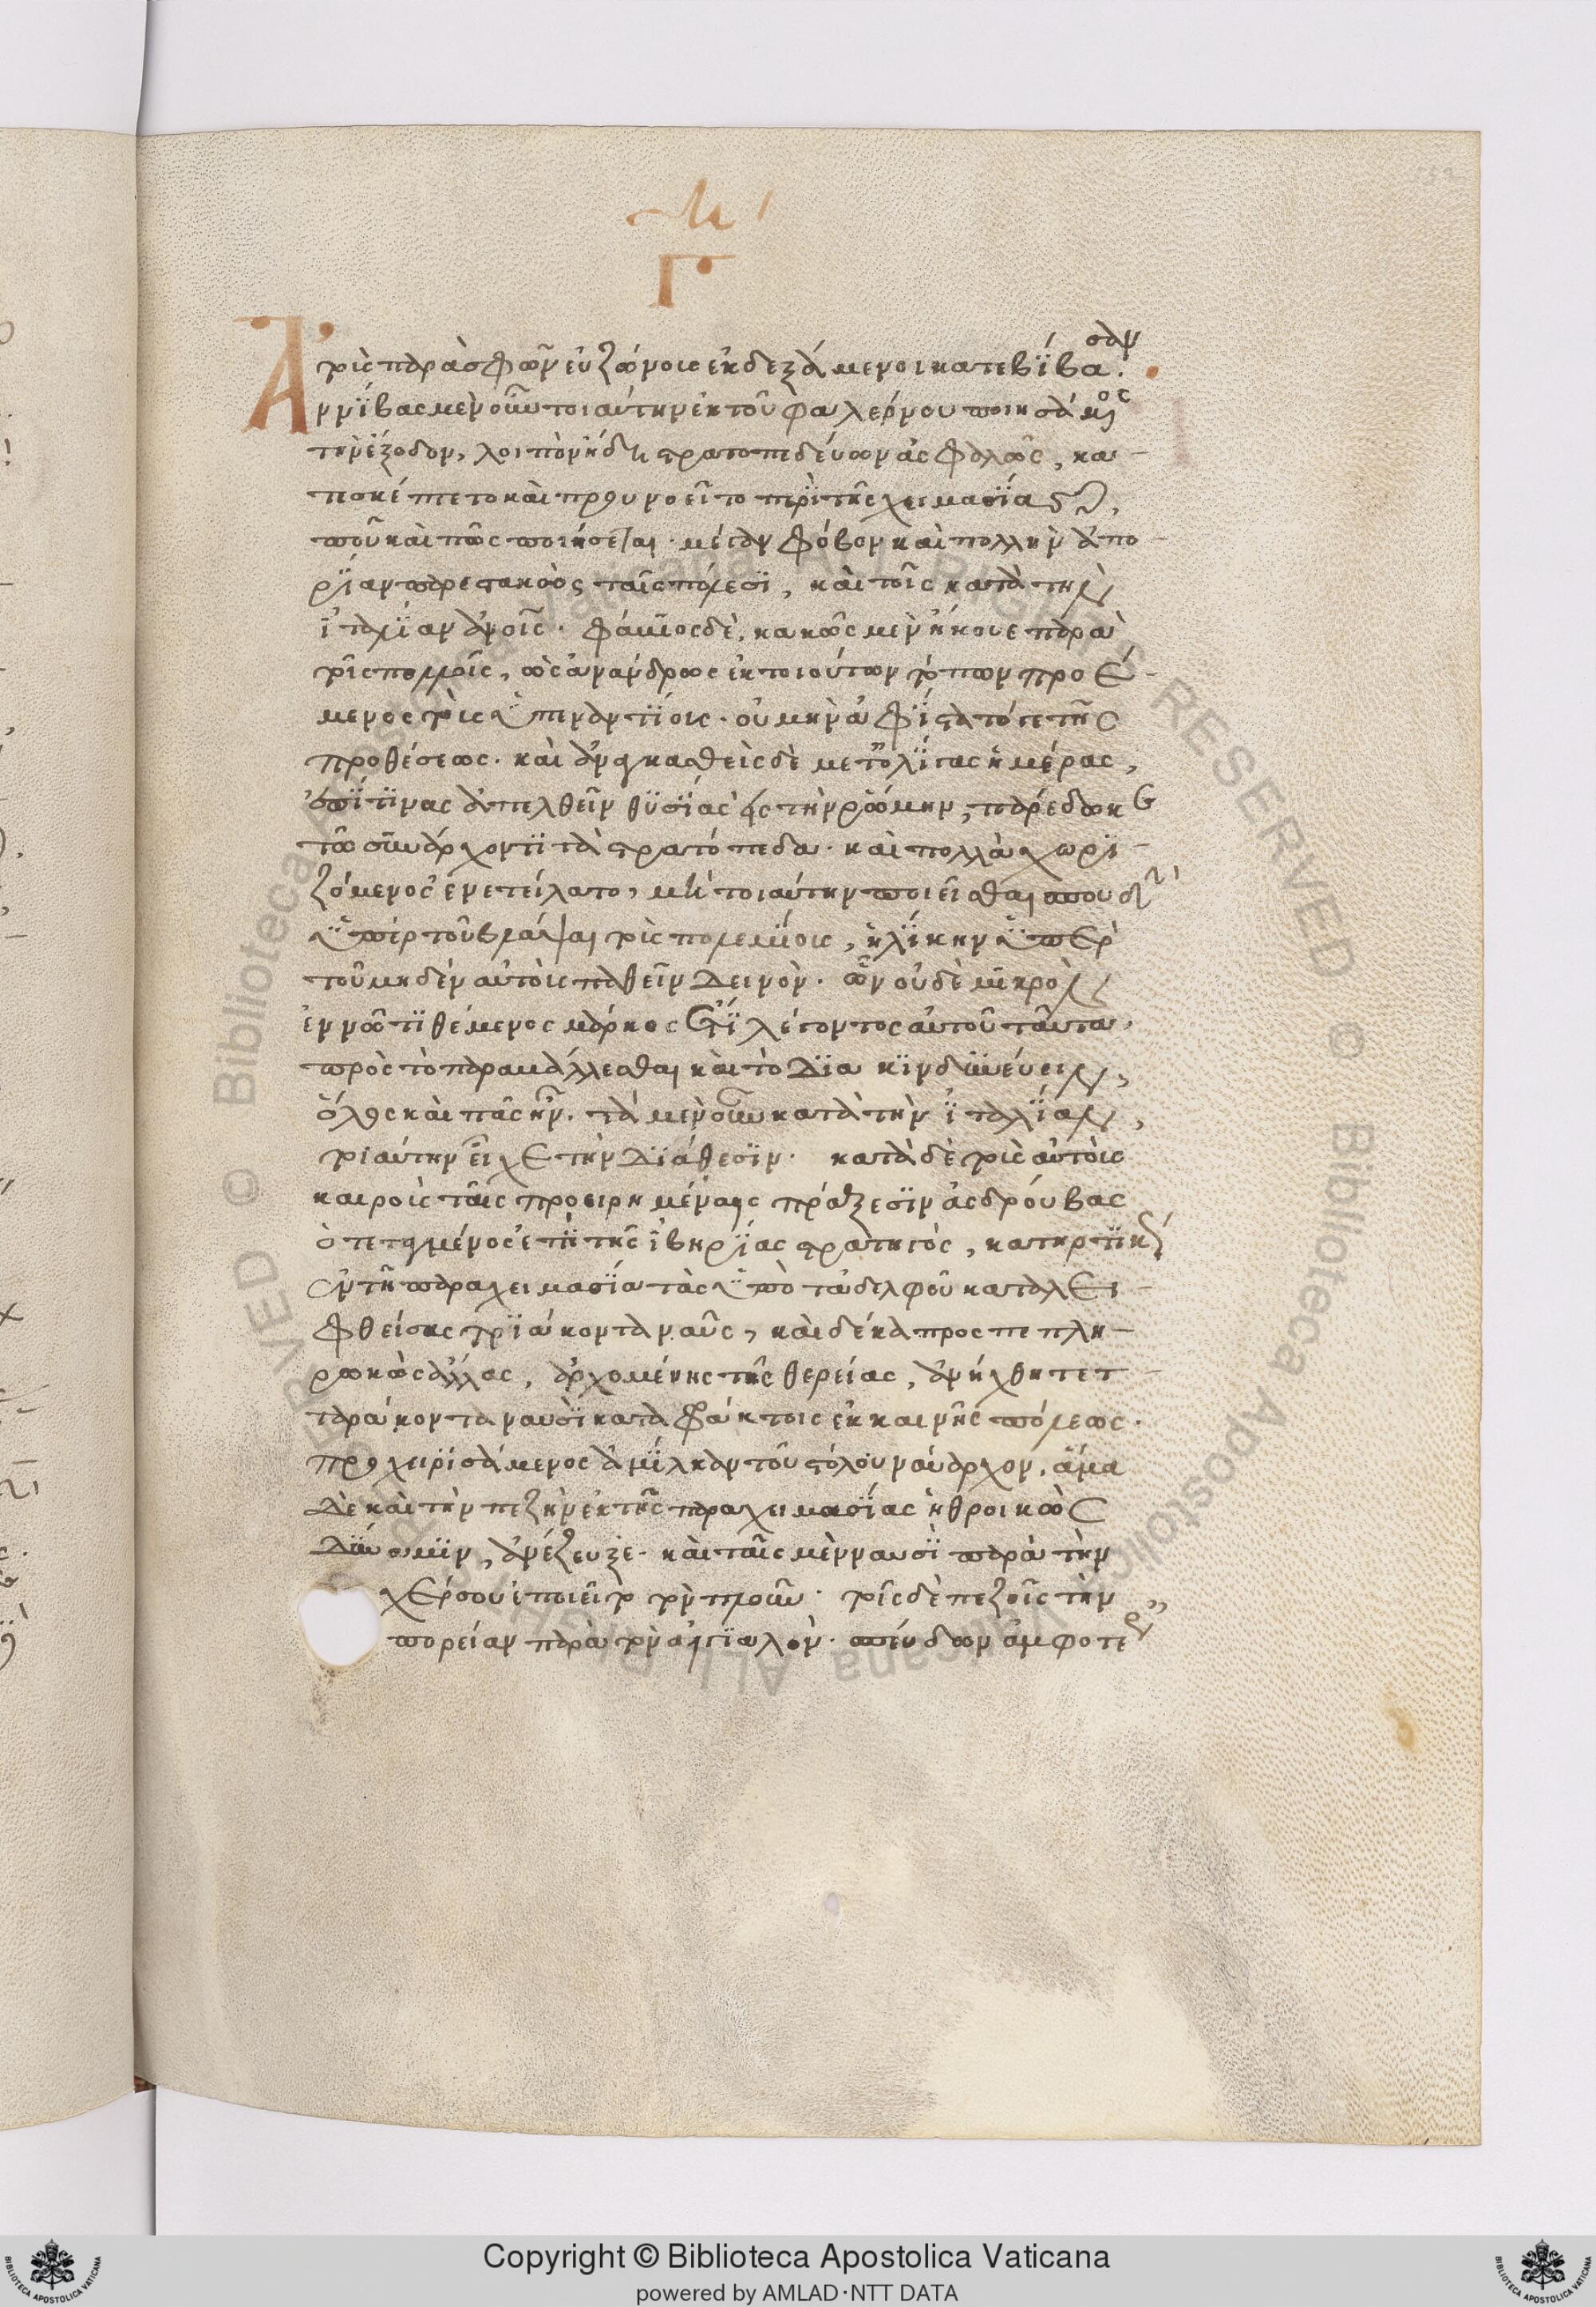 Γ
τοὺς παρὰ σφῶν εὐζώνους ἐκδεξάμενοι κατεβΐβασαν.
Ἀννΐβας μὲν οὖν τοιαύτην ἐκ τοῦ φαλέρνου ποιησάμενος
τὴν ἔξοδον, λοιπὸν ἤδη στρατοπεδεύων ἀσφαλῶς, κα-
τεσκέπτετο καὶ προυνοεῖτο περῒ τῆς χειμασΐας,
ποῦ καὶ πῶς ποιήσεται· μέγαν φόβον καὶ πολλὴν ἀπο-
ρΐαν παρεστακὼς ταῖς πόλεσϊ, καὶ τοῖς κατὰ τὴν
ἰταλΐαν ἀνοῖς· φάβιος δὲ, κακῶς μὲν ἤκουε παρὰ
τοῖς πολλοῖς, ὡς ἀνάνδρως ἐκ τοιούτων τόπων προέ-
μενος τοὺς ὑπεναντΐους· οὐ μὴν ἀφΐστατό γε τῆς
προθέσεως· καὶ ἀναγκασθεὶς δὲ μετ' ὀλΐγας ἡμέρας,
ἐπΐ τϊνας ἀπελθεῖν θϋσΐας εἰς τὴν ρώμην, παρέδωκε
τῶ συνάρχοντϊ τὰ στρατόπεδα· καὶ πολλὰ χωρϊ-
ζόμενος ἐνετείλατο, μὴ τοιαύτην ποιεῖσθαι σπουδὴν
ὑπὲρ τοῦ βλάψαι τοὺς πολεμΐους, ἡλΐκην ὑπὲρ
τοῦ μηδὲν αὐτοὺς παθεῖν δεινὸν· ὧν οὐδὲ μϊκρὸν
ἐν νῶ τϊθέμενος μάρκος ἔτϊ λέγοντος αὐτοῦ ταῦτα,
πρὸς τὸ παραβάλλεσθαι καὶ τὸ διακϊνδυνεύειν,
ὅλος καὶ πᾶς ἦν. τὰ μὲν οὖν κατὰ τὴν ἰταλΐαν,
τοιαύτην εἶχε τὴν διάθεσϊν· κατὰ δὲ τοὺς αὐτοὺς
καιροὺς ταῖς προειρημέναις πράξεσϊν ἀσδρούβας
ὁ τεταγμένος ἐπῒ τῆς ἰβηρΐας στρατηγὸς, κατηρτϊκὼς
ἐν τῆ παραχειμασΐα τὰς ὑπὸ τἀδελφοῦ καταλει-
φθείσας τρϊάκοντα ναῦς, καὶ δέκα προσπεπλη-
ρωκὼς ἄλλας, ἀρχομένης τῆς θερείας, ἀνήχθη τετ-
ταράκοντα ναυσῒ καταφράκτοις ἐκ καινῆς πόλεως·
προχειρισάμενος ἀμΐλκαν τοῦ στόλου ναύαρχον, ἅμα
δὲ καὶ τὴν πεζὴν ἐκ τῆς παραχειμασΐας ἠθροικὼς
δύναμϊν, ἀνέζευξε· καὶ ταῖς μὲν ναυσῒ παρὰ τὴν
χέρσον ἐποιεῖτο τὸν πλοῦν· τοῖς δὲ πεζοῖς τὴν
πορείαν παρὰ τὸν αἰγϊαλὸν· σπεύδων ἀμφοτέρ